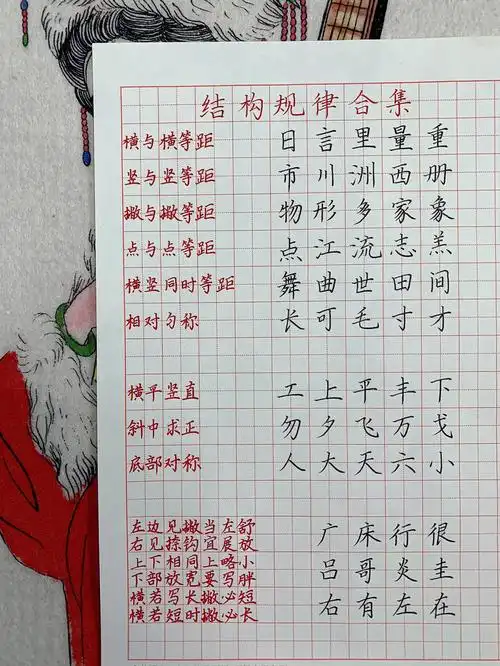 结构规律合集
横与横等距 日言里量重
竖与竖等距 市川洲西册
撇与撇等距 物形多家象
点与点等距 点江流志羔
横竖同时等距 舞曲世田间
相对匀称 长可毛寸才
横平竖直 工上平丰下
斜中求正 勿夕飞万戈
底部对称 人大天六小
左边见撇当左舒 广床行很
右见捺钩宜展放
上下相同上略小 吕哥炎圭
下部放宽要写胖
横若写长撇必短 右有左在
横若短时撇必长